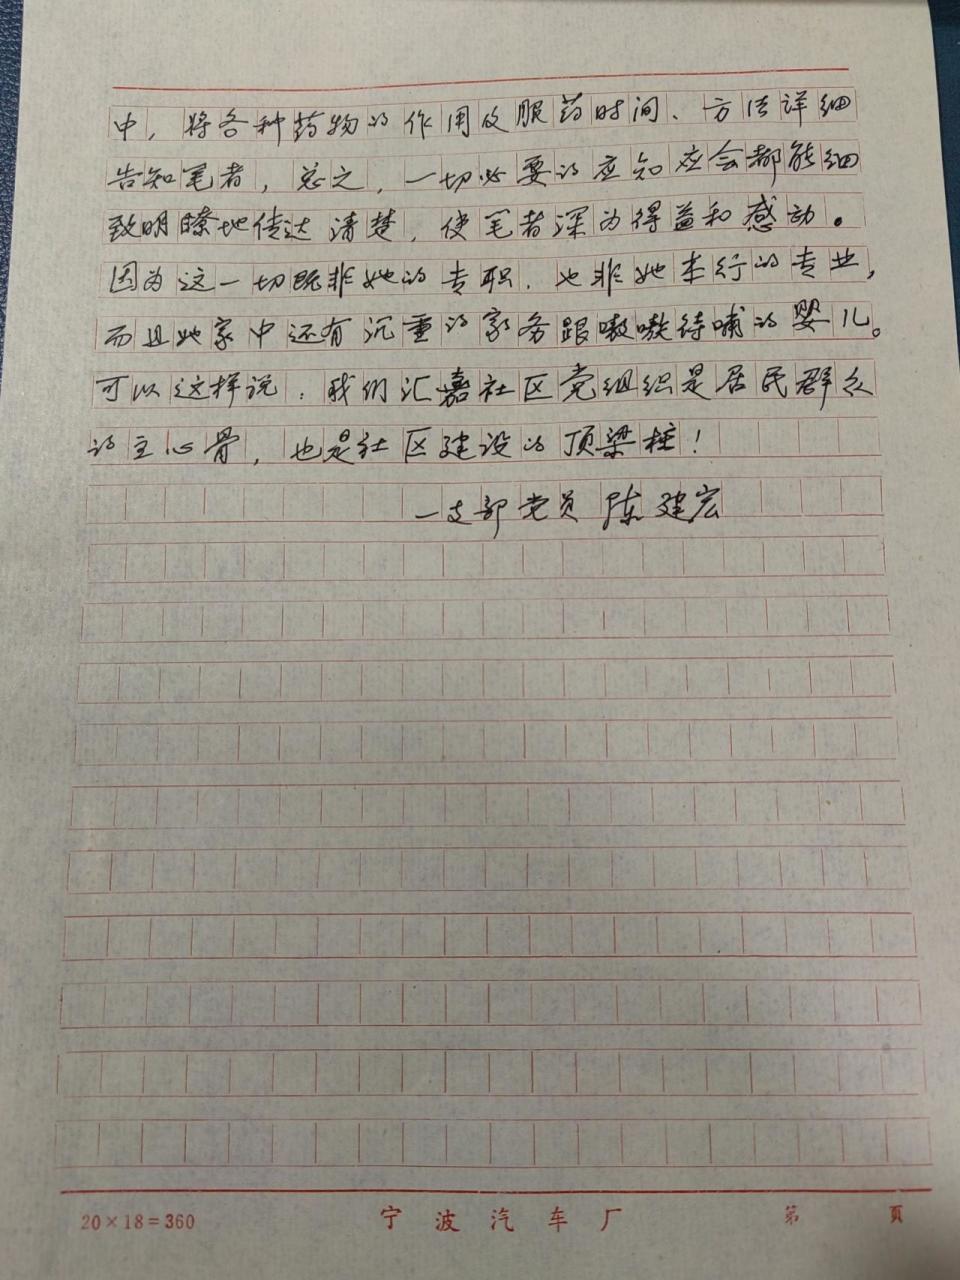 中，将各种药物的作用及服药时间、方法详细
告知笔者，总之，一切必要的应知应会都能细
致明瞭地传达清楚，使笔者深为得益和感动。
因为这一切既非她的专职，也非她本行的专业，
而且她家中还有沉重的家务跟嗷嗷待哺的婴儿。
可以这样说：我们汇嘉社区党组织是居民群众
的主心骨，也是社区建设的顶梁柱！
一支部党员 陈建宏
20×18=360 宁波汽车厂 第 頁